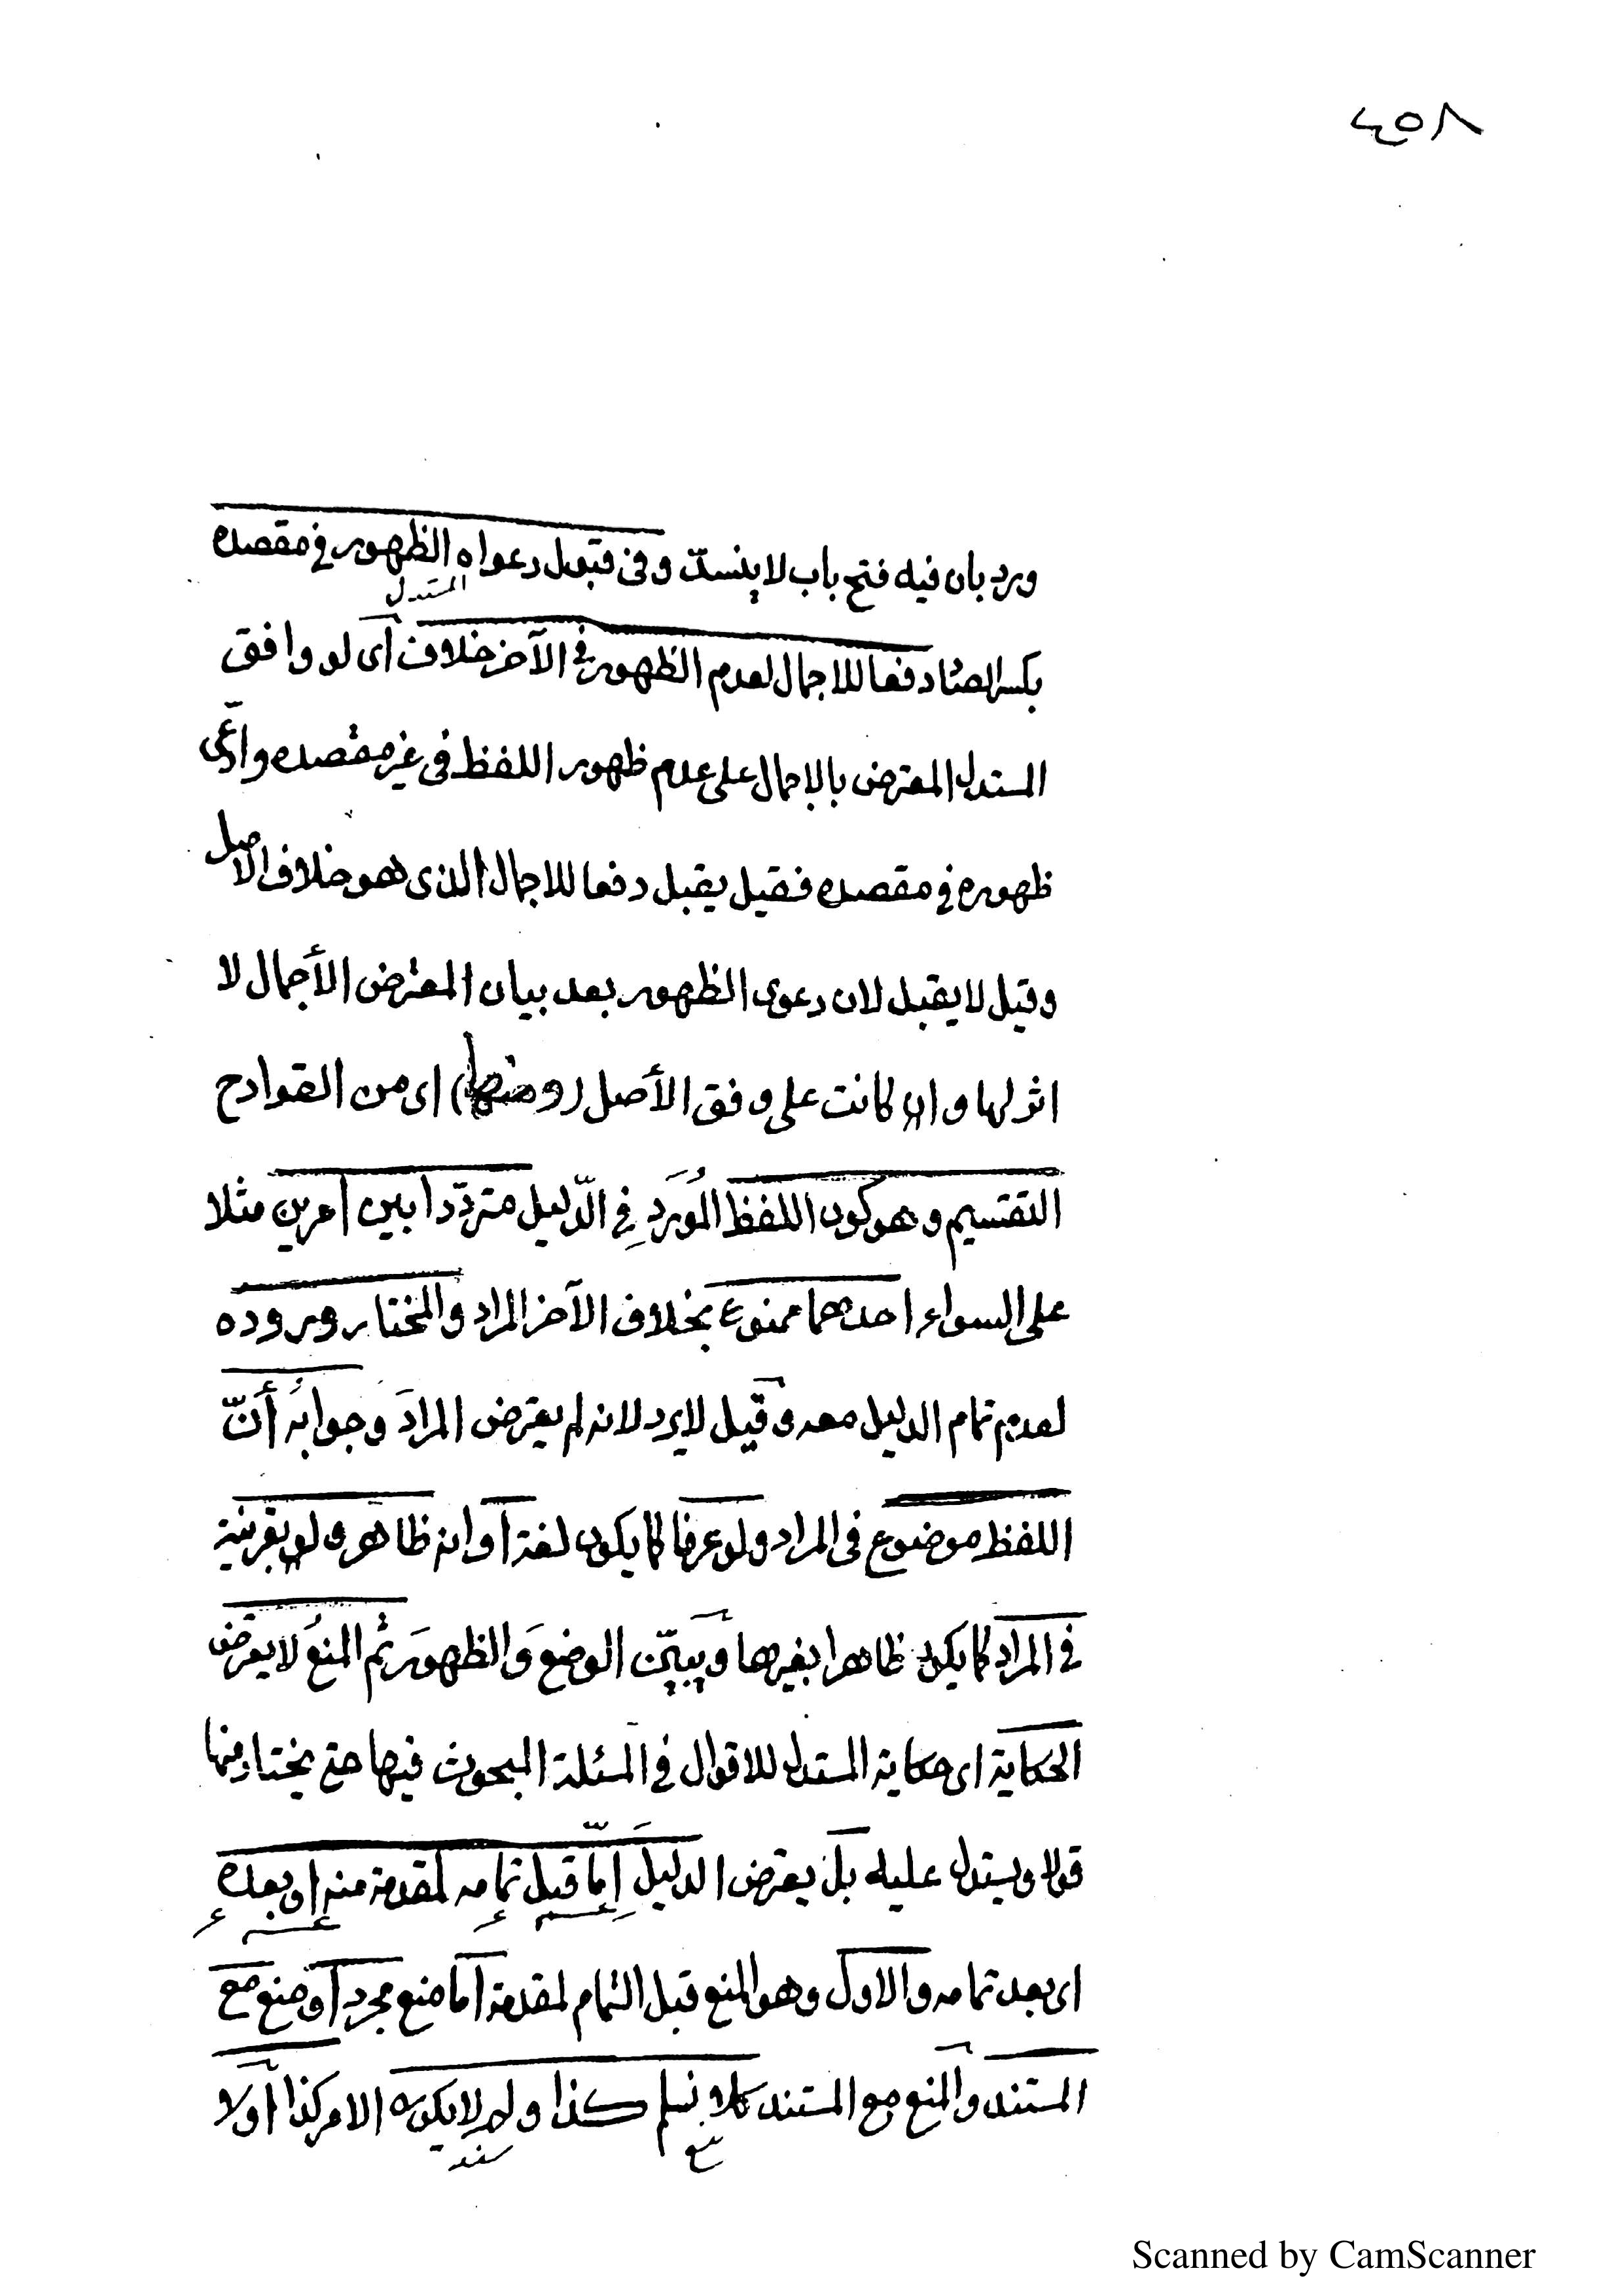 ٤٥٨
ورد بان فيه فتح باب لا ينسدّ وفى قبول دعواه الظهور فى مقصده
المستدل
بكسر الصاد دفعا للاجمال لعدم الظهور فى الآخر خلاف اى لو وافق
المستدل المعترض بالاجمال على عدم ظهور اللفظ فى غير مقصده وادّعى
ظهوره فى مقصده فقيل يقبل دفعا للاجمال الذى هو خلاف الاصل
وقيل لا يقبل لان دعوى الظهور بعد بيان المعترض الأجمال لا
اثر لها وان كانت على وفق الأصل (ومنها) اى من القوادح
التقسيم وهو كون اللفظ المُورَد فِى الدّليل متردّدا بين امرين مثلا
على السواء احدهما ممنوع بخلاف الآخر المراد والمختار وروده
لعدم تمام الدليل معه وقيل لا يرد لانه لم يعترض المرادَ وجوابُه أنّ
اللفظ موضوع فى المراد ولو عرفا كما يكون لغة او انه ظاهر ولو بقرينة
فى المراد كما يكون ظاهرا بغيرها ويبيّن الوضعَ والظهورَ ثم المنعُ لا يعترض
الحكاية اى حكاية المستدل للاقوال فى المسئلة المبحوث فيها حتى يختار منها
قولا ويستدل عليه بل يعترض الدليلَ إمّا قبل تمامه لمقدمة منه او بعده
اى بعد تمامه والاول وهو المنع قبل التمام لمقدمة اما منع مجرد او منع مع
المستند والمنع مع المستند كلا نسلم كذا ولم لا يكون الامر كذا أو لا
منع
سند
Scanned by CamScanner